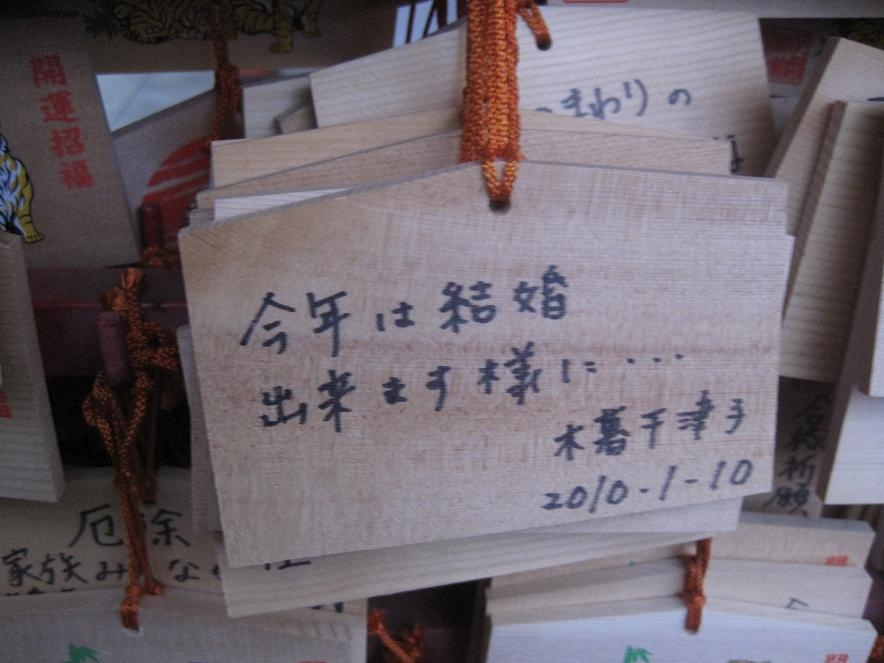 開運招福
まわりの
今年は結婚
出来ます様に・・・
木暮千津子
2010.1-10
合格祈願
厄除
家族み